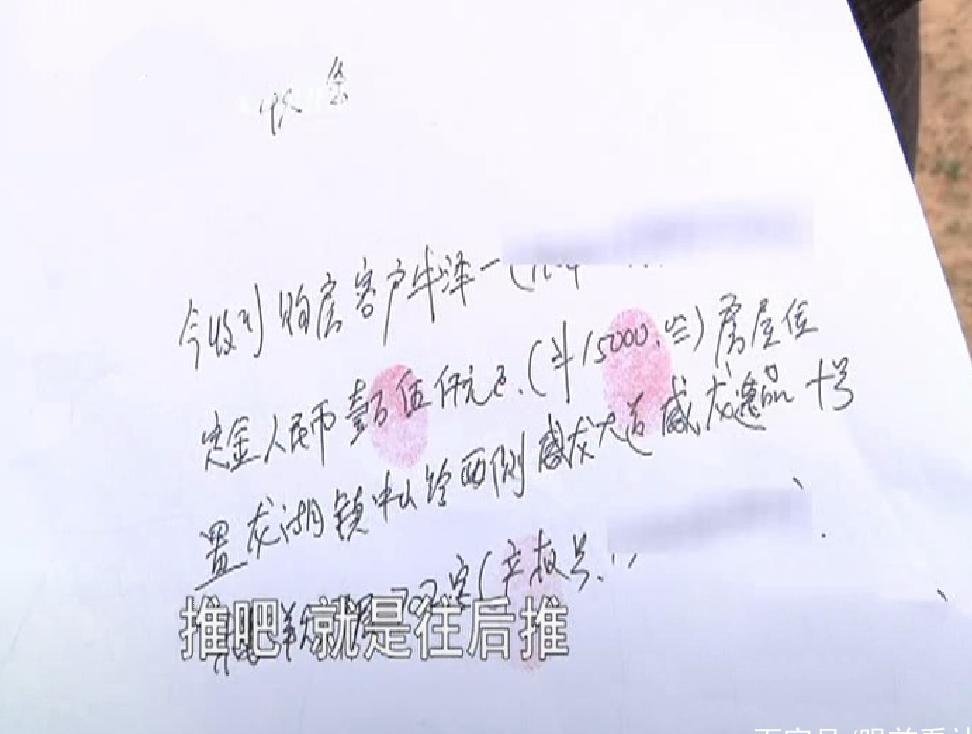 收条
今收到购房客户牛泽一(
定金人民币壹万伍仟元正.(¥15000.00)房屋位
置龙湖镇中山路西侧威龙大道威龙逸品十号
702室(产权号
推吧 就是往后推